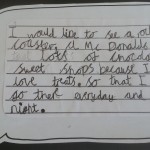 I would like to see a
coaster, a Mc Donalds
lots of
sweet shops because I
love treats. so that I
so there everyday and
night.